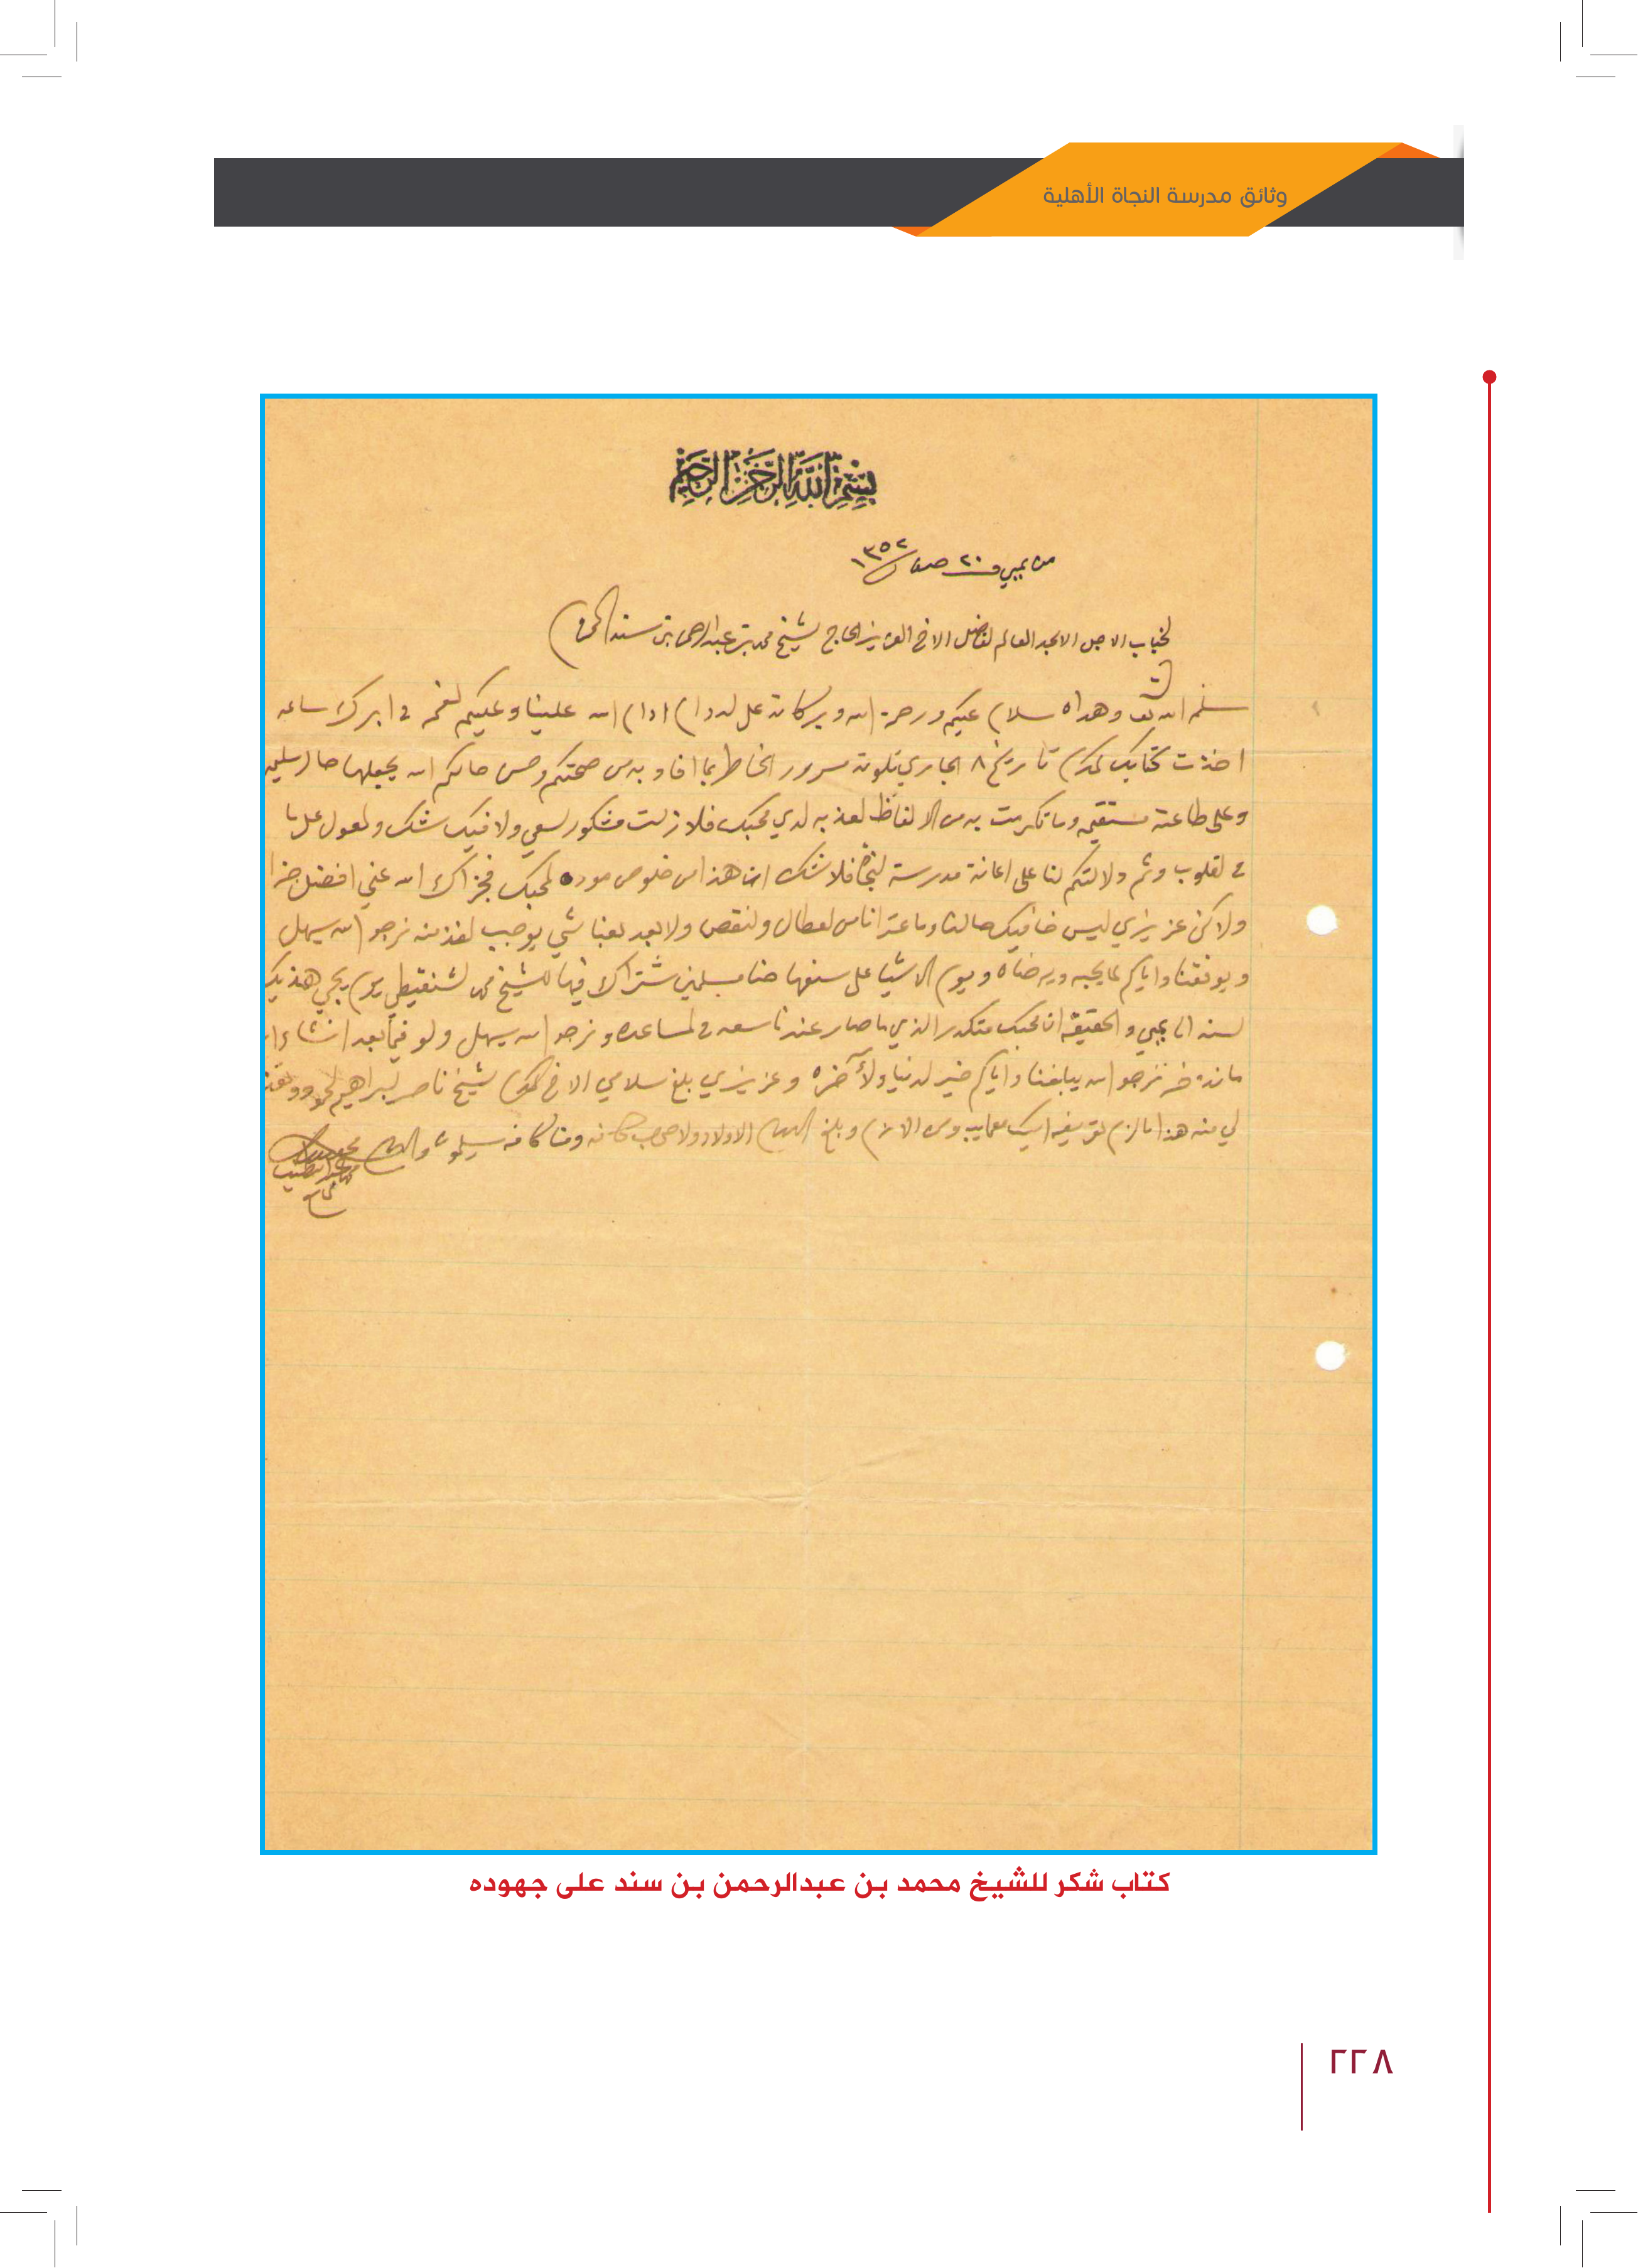 وثائق مدرسة النجاة الأهلية
بسم الله الرحمن الرحيم
من بمبي في ٢٠ صفر ١٣٥٢
لجناب الاجل الامجد العالم لفاضل الاخ العزيز الحاج لشيخ محمد بن عبدالرحمن بن سند المحترم
سلمه الله تعالى وهداه سلام عليكم ورحمة الله وبركاته على لدوام ادام الله علينا وعليكم لنعم في ابرك ساعه
اخذت كتابك لمكرم تاريخ ٨ الجاري تلوته مسرور الخاطر بما افاد به من صحتكم وحسن حالكم الله يجعلها حال سليمه
وعلى طاعته مستقيمه وما تكرمت به من الالفاظ لعذبه لدي محبك فلا زلت مشكور لسعي ولا فيك شك ولمعول على ما
في لقلوب وثم دلالتكم لنا على اعانة مدرسة لنجاة فلا شك ان هذا من خلوص موده لمحبك فجزاك الله عني افضل جزا
ولاكن عزيزي ليس خافيك حالنا وما عترا ناس لعطال ولنقص ولا بعد لعبنا شي يوجب لفذمنه نرجو الله يسهل
ويوفقنا واياكم لما يحبه ويرضاه ويوم الاشيا على سنعها حنا مسلمين شتراك فيها للشيخ محمد لشنقيطي يوم يجي هذيك
لسنه الى بمبي والحقيقه ان محبك متكدر الذي ما صار عندنا سعه في لمساعده ونرجو الله يسهل ولو فيما بعد انشاء الله
ما نذخر نرجو الله يبلغنا واياكم خير لدنيا ولآخره وعزيزي بلغ سلامي الاخ لمكرم لشيخ ناصر لبراهيم
لي منه هذا ما لزم تعريفه وبلغ السلام الاولاد ولاصحاب كافه ومنا كافه يسلمون والسلام
كتاب شكر للشيخ محمد بن عبدالرحمن بن سند على جهوده
٢٢٨